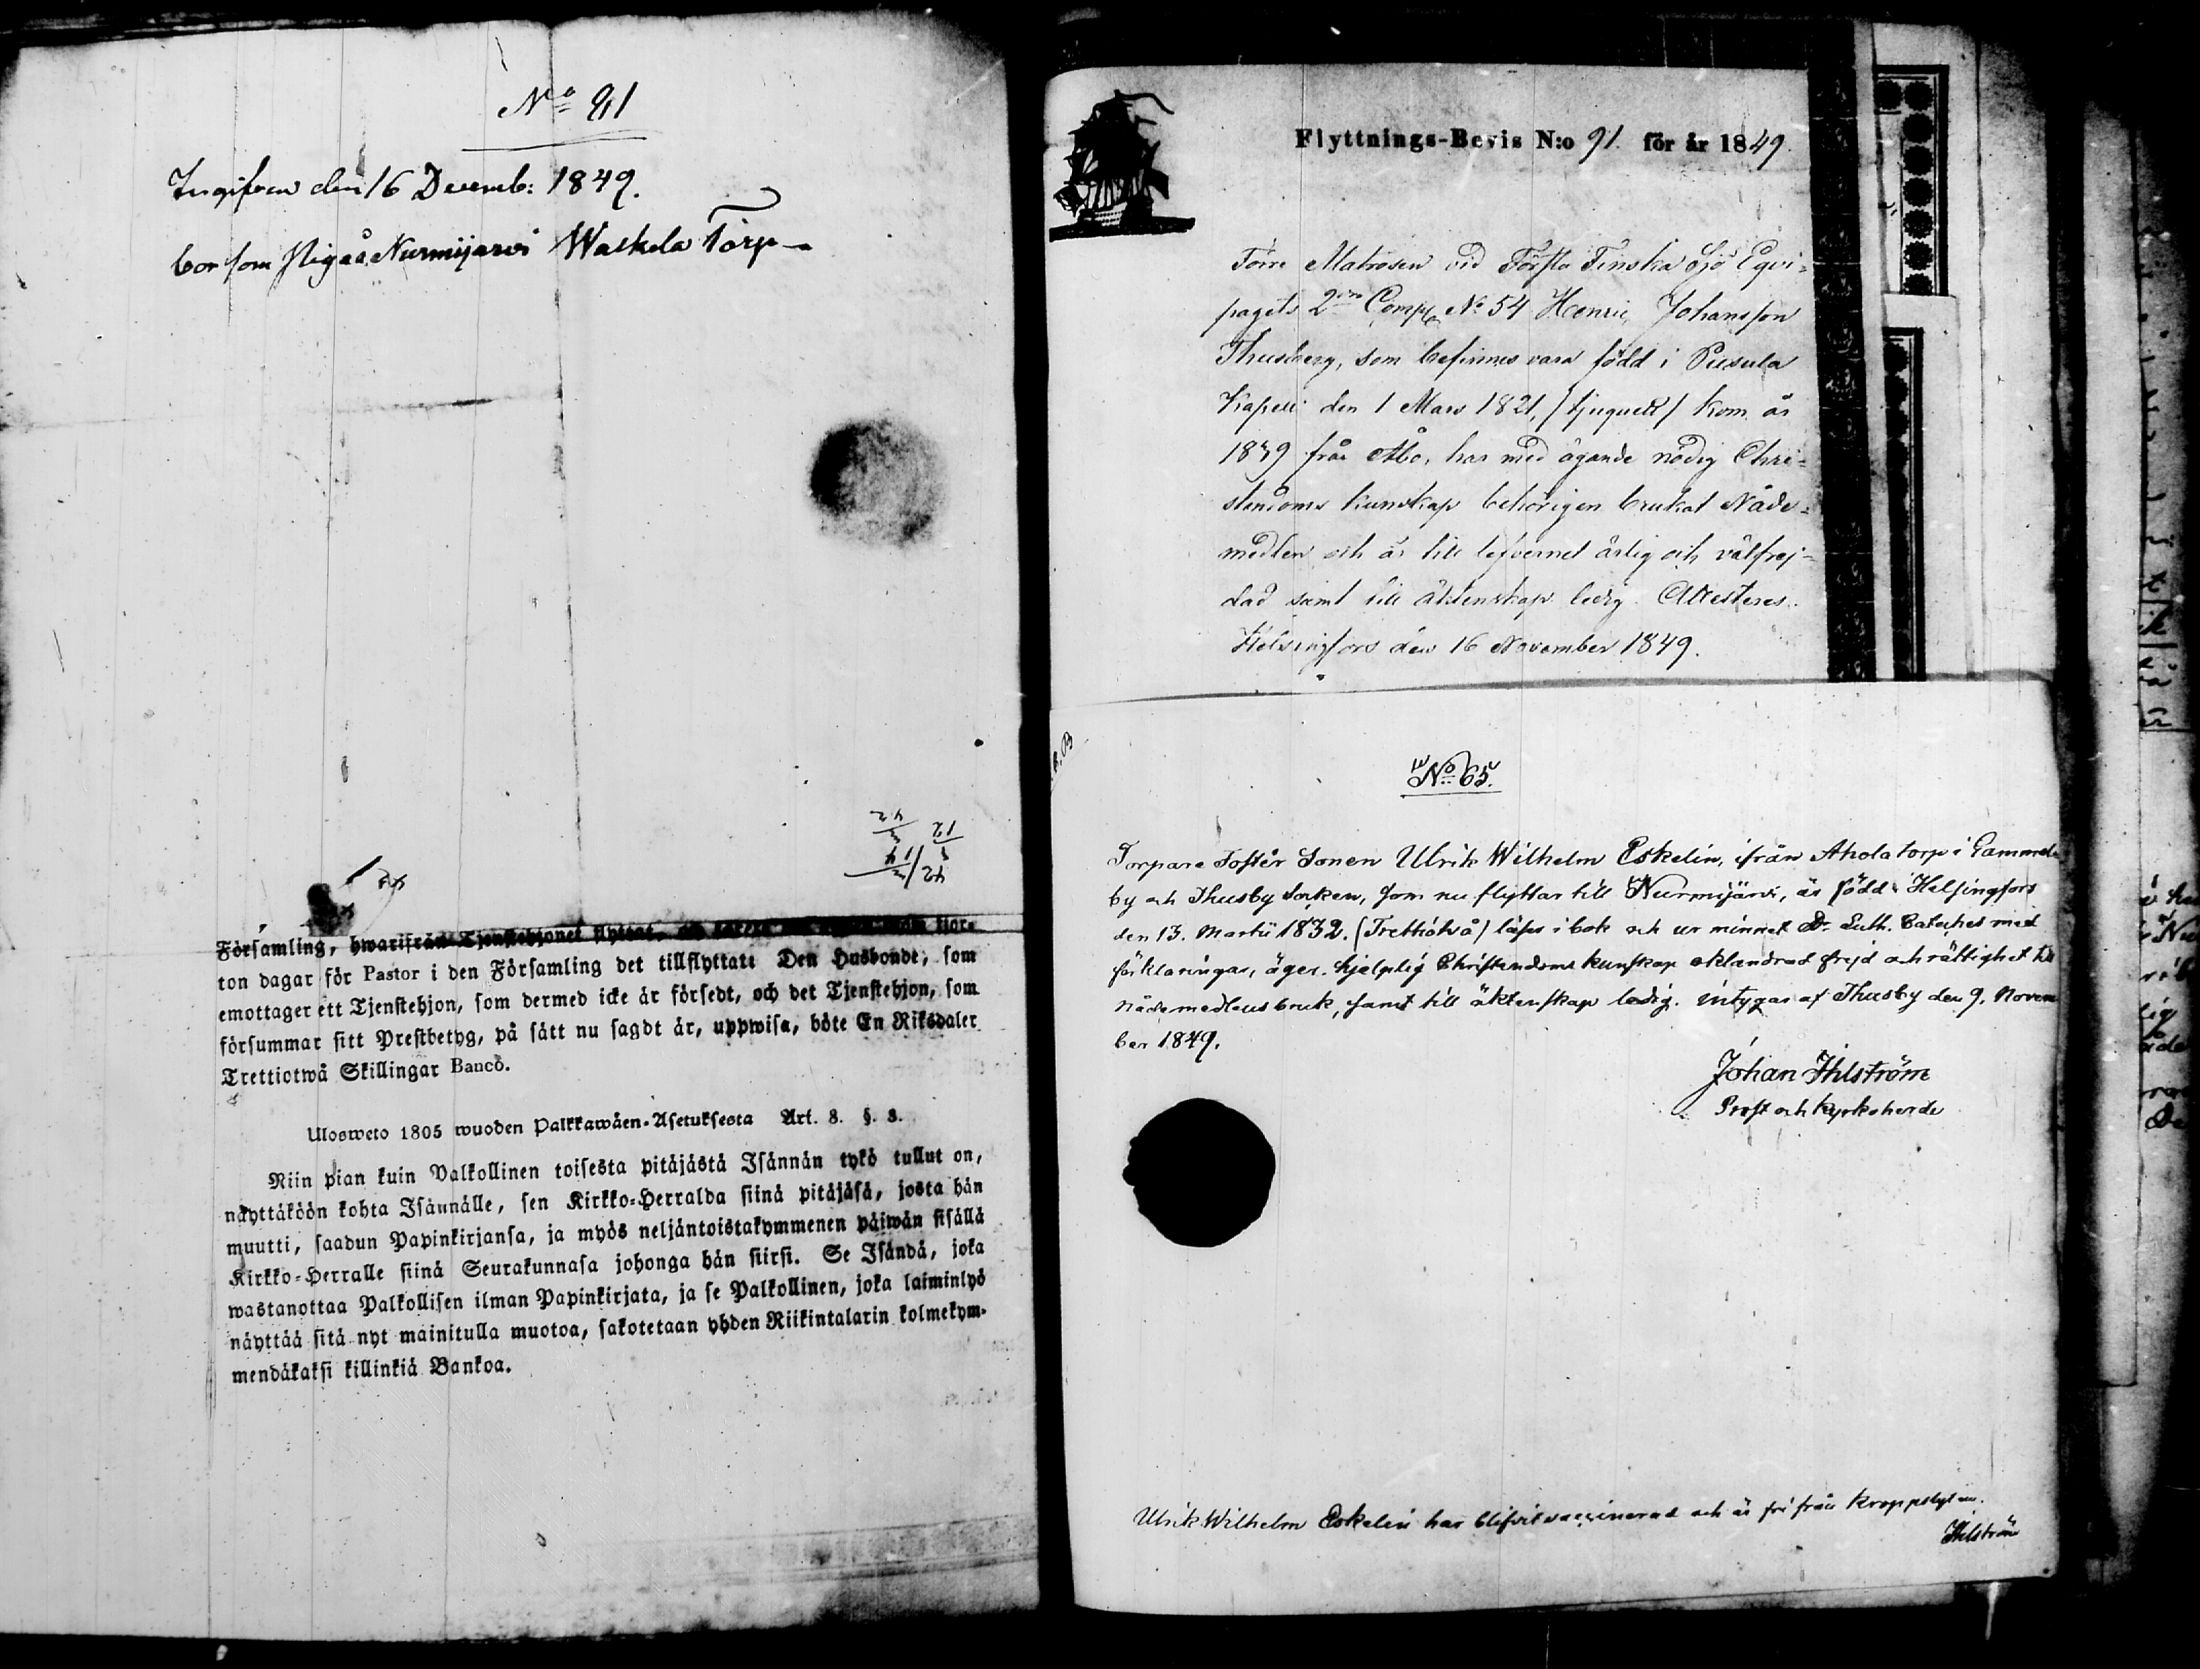 No 81
Ingifven den 16 Decemb: 1849.
bor som Pigaå Nurmijarvi Waskela Torp
Församling, hwarifrån Tjenstehjonet flyttat, och sedan
ton dagar för Pastor i den Församling det tillflyttatt Den Husbonde, som
emottager ett Tjenstehjon, som dermed icke är försedt, och det Tjenstehjon, som
försummar sitt Prestbetyg, på sätt nu sagdt är, uppwisa, böte En Riksdaler
Trettiotwå Skillingar Banco.
Ulosweto 1805 wuoden Palkkawäen-Asetuksesta Art. 8. §. 3.
Niin pian kuin Palkollinen toisesta pitäjästä Isännän tykö tullut on,
näyttäköön kohta Isännälle, sen Kirkko-Herralda siinä pitäjäsä, josta hän
muutti, saadun Papinkirjansa, ja myös neljäntoistakymmenen päiwän sisällä
Kirkko-Herralle siinä Seurakunnasa johonga hän siirsi. Se Isändä, joka
wastanottaa Palkollisen ilman Papinkirjata, ja se Palkollinen, joka laiminlyö
näyttää sitä nyt mainitulla muotoa, sakotetaan yhden Riikintalarin kolmekym-
mendäkaksi killinkiä Bankoa.
Flyttnings-Bevis N:o 91 för år 1849.
Förre Matrosen vid Första Finska Sjö Eqvi-
pagets 2dra Comp No 54 Henric Johansson
Thusberg, som befinnes vara född i Pusula
Kapell den 1 Mars 1821, /tjuguett/ kom år
1839 från Åbo, har med ägande nödig Chri-
stendoms kunskap behörigen brukat Nåde-
medlen och är till lefvernet ärlig och välfrej-
dad samt till äktenskap ledig. Attesteres.
Helsingfors den 16 November 1849.
No 65.
Torpare Foster Sonen Ulrik Wilhelm Eskelin, ifrån Ahola torp i Gammel
by och Thusby Socken, som nu flyttar till Nurmijärvi, är född i Helsingfors
den 13. Martii 1832. (Trettiotvå) läser i bok och ur minnet Dr. Luth. Cateches med
förklaringar, äger hjelplig Christendoms kunskap oklandrad frejd och rättighet till
nådemedlens bruk, samt till äktenskap ledig. intygas af Thusby den 9. Novem
ber 1849.
Johan Ihlström
Prost och Kyrkoherde
Ulrik Wilhelm Eskelin har blifvit vaccinerad och är fri från kroppslyten.
Ihlström